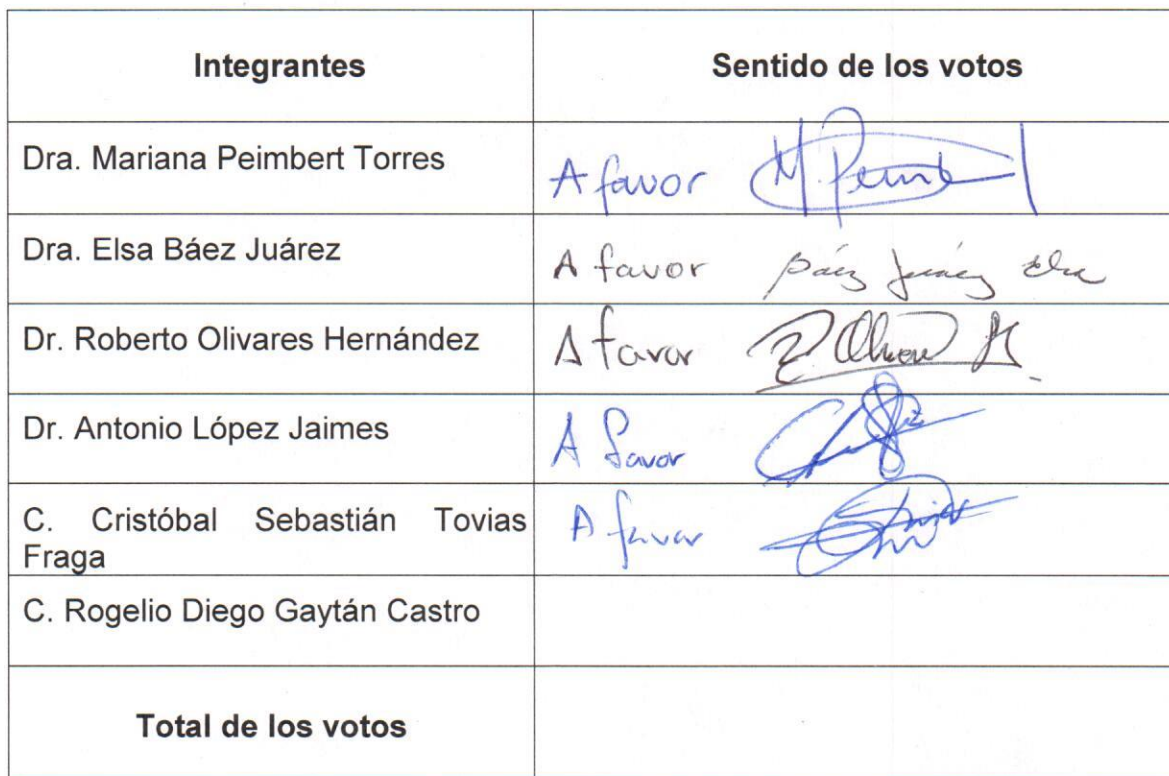 Integrantes Sentido de los votos
Dra. Mariana Peimbert Torres A favor
Dra. Elsa Báez Juárez A favor Báez Juárez Elsa
Dr. Roberto Olivares Hernández A favor
Dr. Antonio López Jaimes A favor
C. Cristóbal Sebastián Tovias A favor
Fraga
C. Rogelio Diego Gaytán Castro
Total de los votos